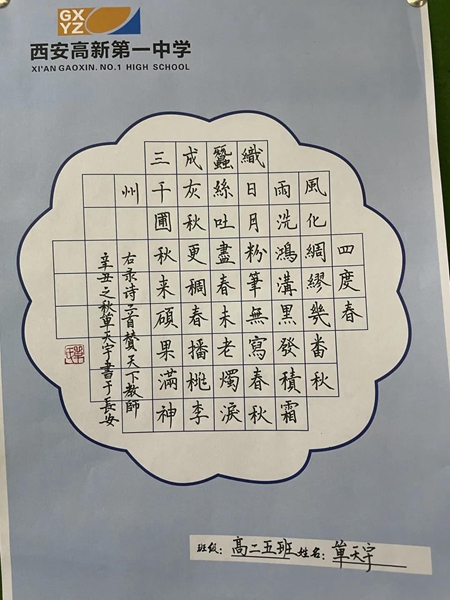 GX
YZ
西安高新第一中学
XI'AN GAOXIN. NO.1 HIGH SCHOOL
四度春
風化綢繆幾番秋
雨洗鴻溝黑發積霜
織日月粉筆無寫春秋
蠶絲吐盡春未老燭淚
成灰秋更稠春播桃李
三千圃秋来碩果滿神
州
右录诗二首赞天下教師
辛丑之秋單天宇書于長安
班级：高二五班 姓名：單天宇